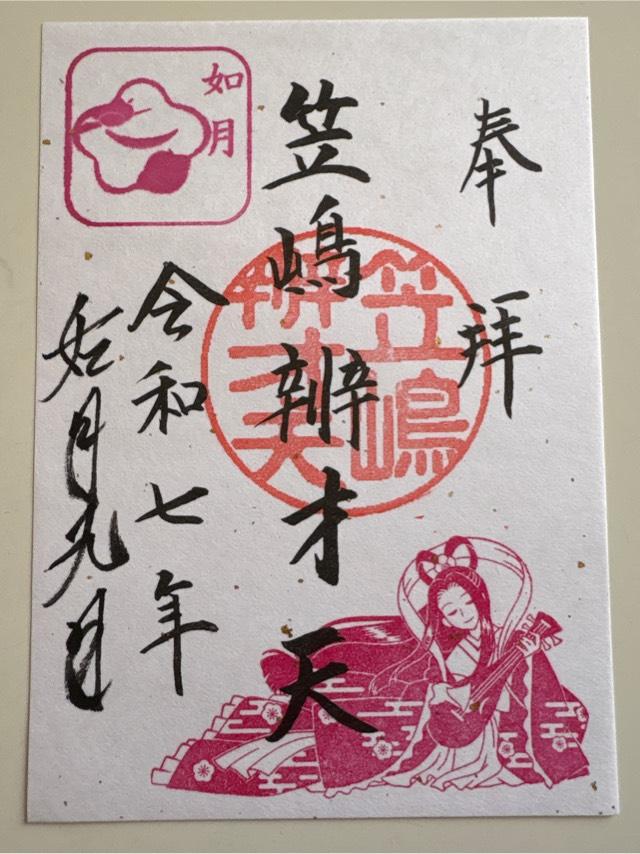 奉拝
笠嶋辨才天
笠嶋
辨才天
令和七年
如月九日
如月